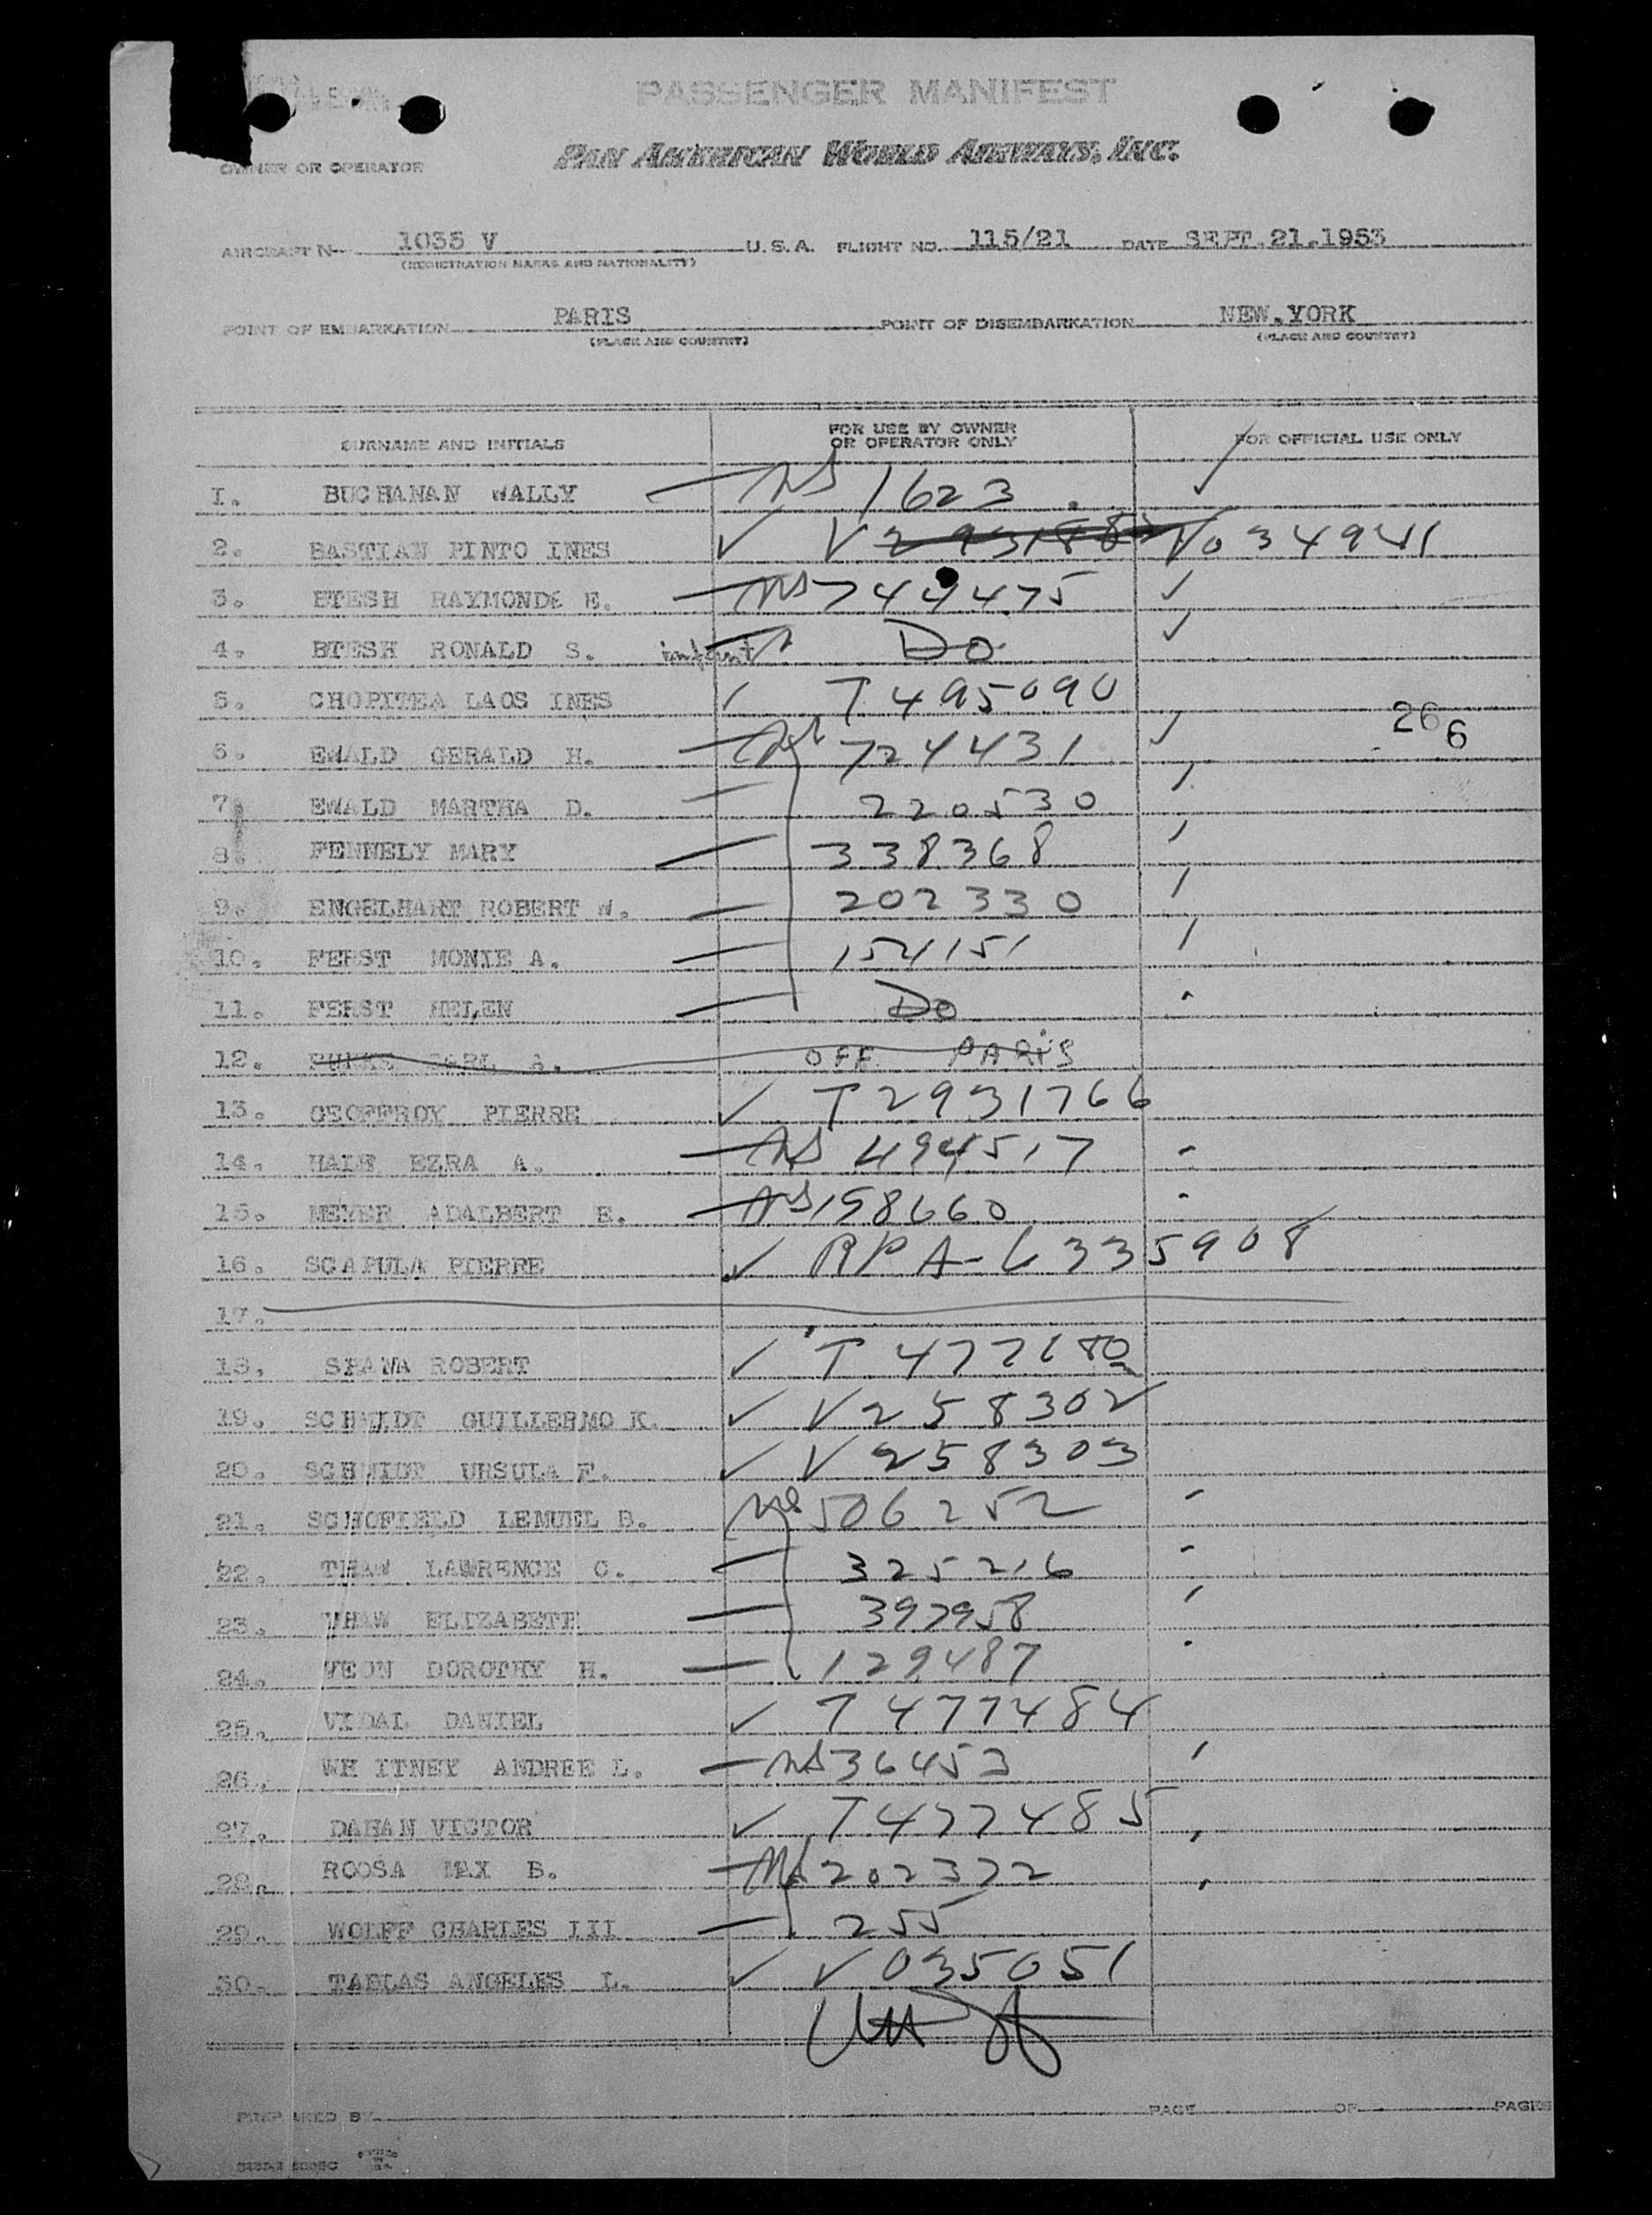 PASSENGER MANIFEST
PAN AMERICAN WORLD AIRWAYS, INC.
OWNER OR OPERATOR
AIRCRAFT N- 1035 V U. S. A. FLIGHT NO. 115/21 DATE SEPT.21.1953
(REGISTRATION MARKS AND NATIONALITY)
POINT OF EMBARKATION PARIS POINT OF DISEMBARKATION NEW.YORK
(PLACE AND COUNTRY) (PLACE AND COUNTRY)
SURNAME AND INITIALS FOR USE BY OWNER OR OPERATOR ONLY FOR OFFICIAL USE ONLY
I. BUCHANAN WALLY 1623
2. BASTIAN PINTO INES V V034941
3. BTESH RAYMONDE E. 749475
4. BTESH RONALD S. infant Do
5. CHOPITEA LAOS INES T 495090
266
6. EWALD GERALD H. 724431
7. EWALD MARTHA D. 220530
8. FENNELY MARY 338368
9. ENGELHART ROBERT W. 202330
10. FERST MONIE A. 154151
11. FERST HELEN Do
12. CARL A. OFF PARIS
13. GEOFFROY PIERRE T2931766
14. EZRA A. 494517
15. MEYER ADALBERT E. 158660
16. SCAPULA PIERRE RPA-6335908
17.
18. ROBERT T 477680
19. SCHMIDT GUILLERMO K. V258302
20. SCHMIDT URSULA F. V258303
21. SCHOFIELD LEMUEL B. 506252
22. THAW LAWRENCE C. 325216
23. THAW ELIZABETH 397958
24. VEON DOROTHY H. 129487
25. VIDAL DANIEL T477484
26. WHITNEY ANDREE L. 36453
27. DAHAN VICTOR T477485
28. ROOSA MAX B. 202372
29. WOLFF CHARLES III 255
30. TABLAS ANGELES L. V035051
PREPARED BY PAGE OF PAGES